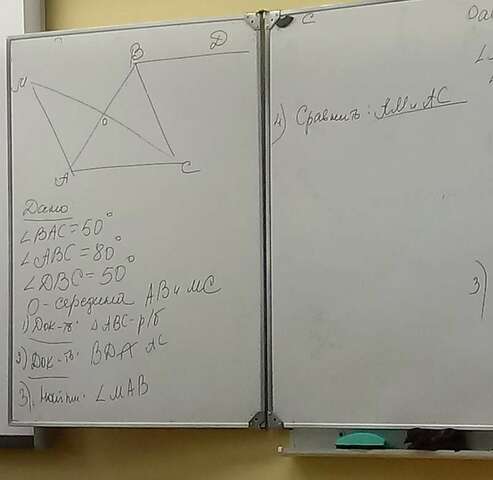 B
D
M
O
A
C
Дано
∠BAC=50°
∠ABC=80°
∠DBC=50°
O-середина AB и MC
1) Док-ть: △ABC-р/б
2) Док-ть: BD∧AC
3). Найти: ∠MAB
C
4) Сравнить: AM и AC
Дан
3)